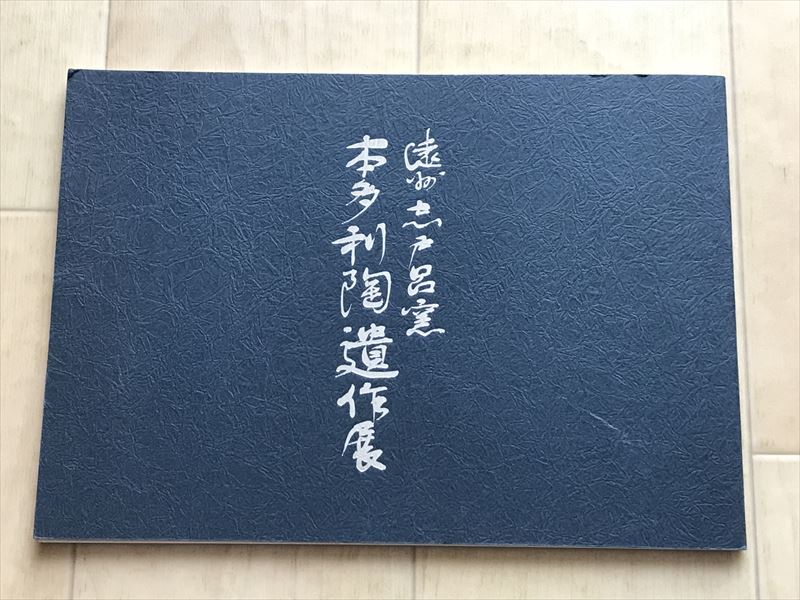 遠州志戸呂窯
本多利陶遺作展